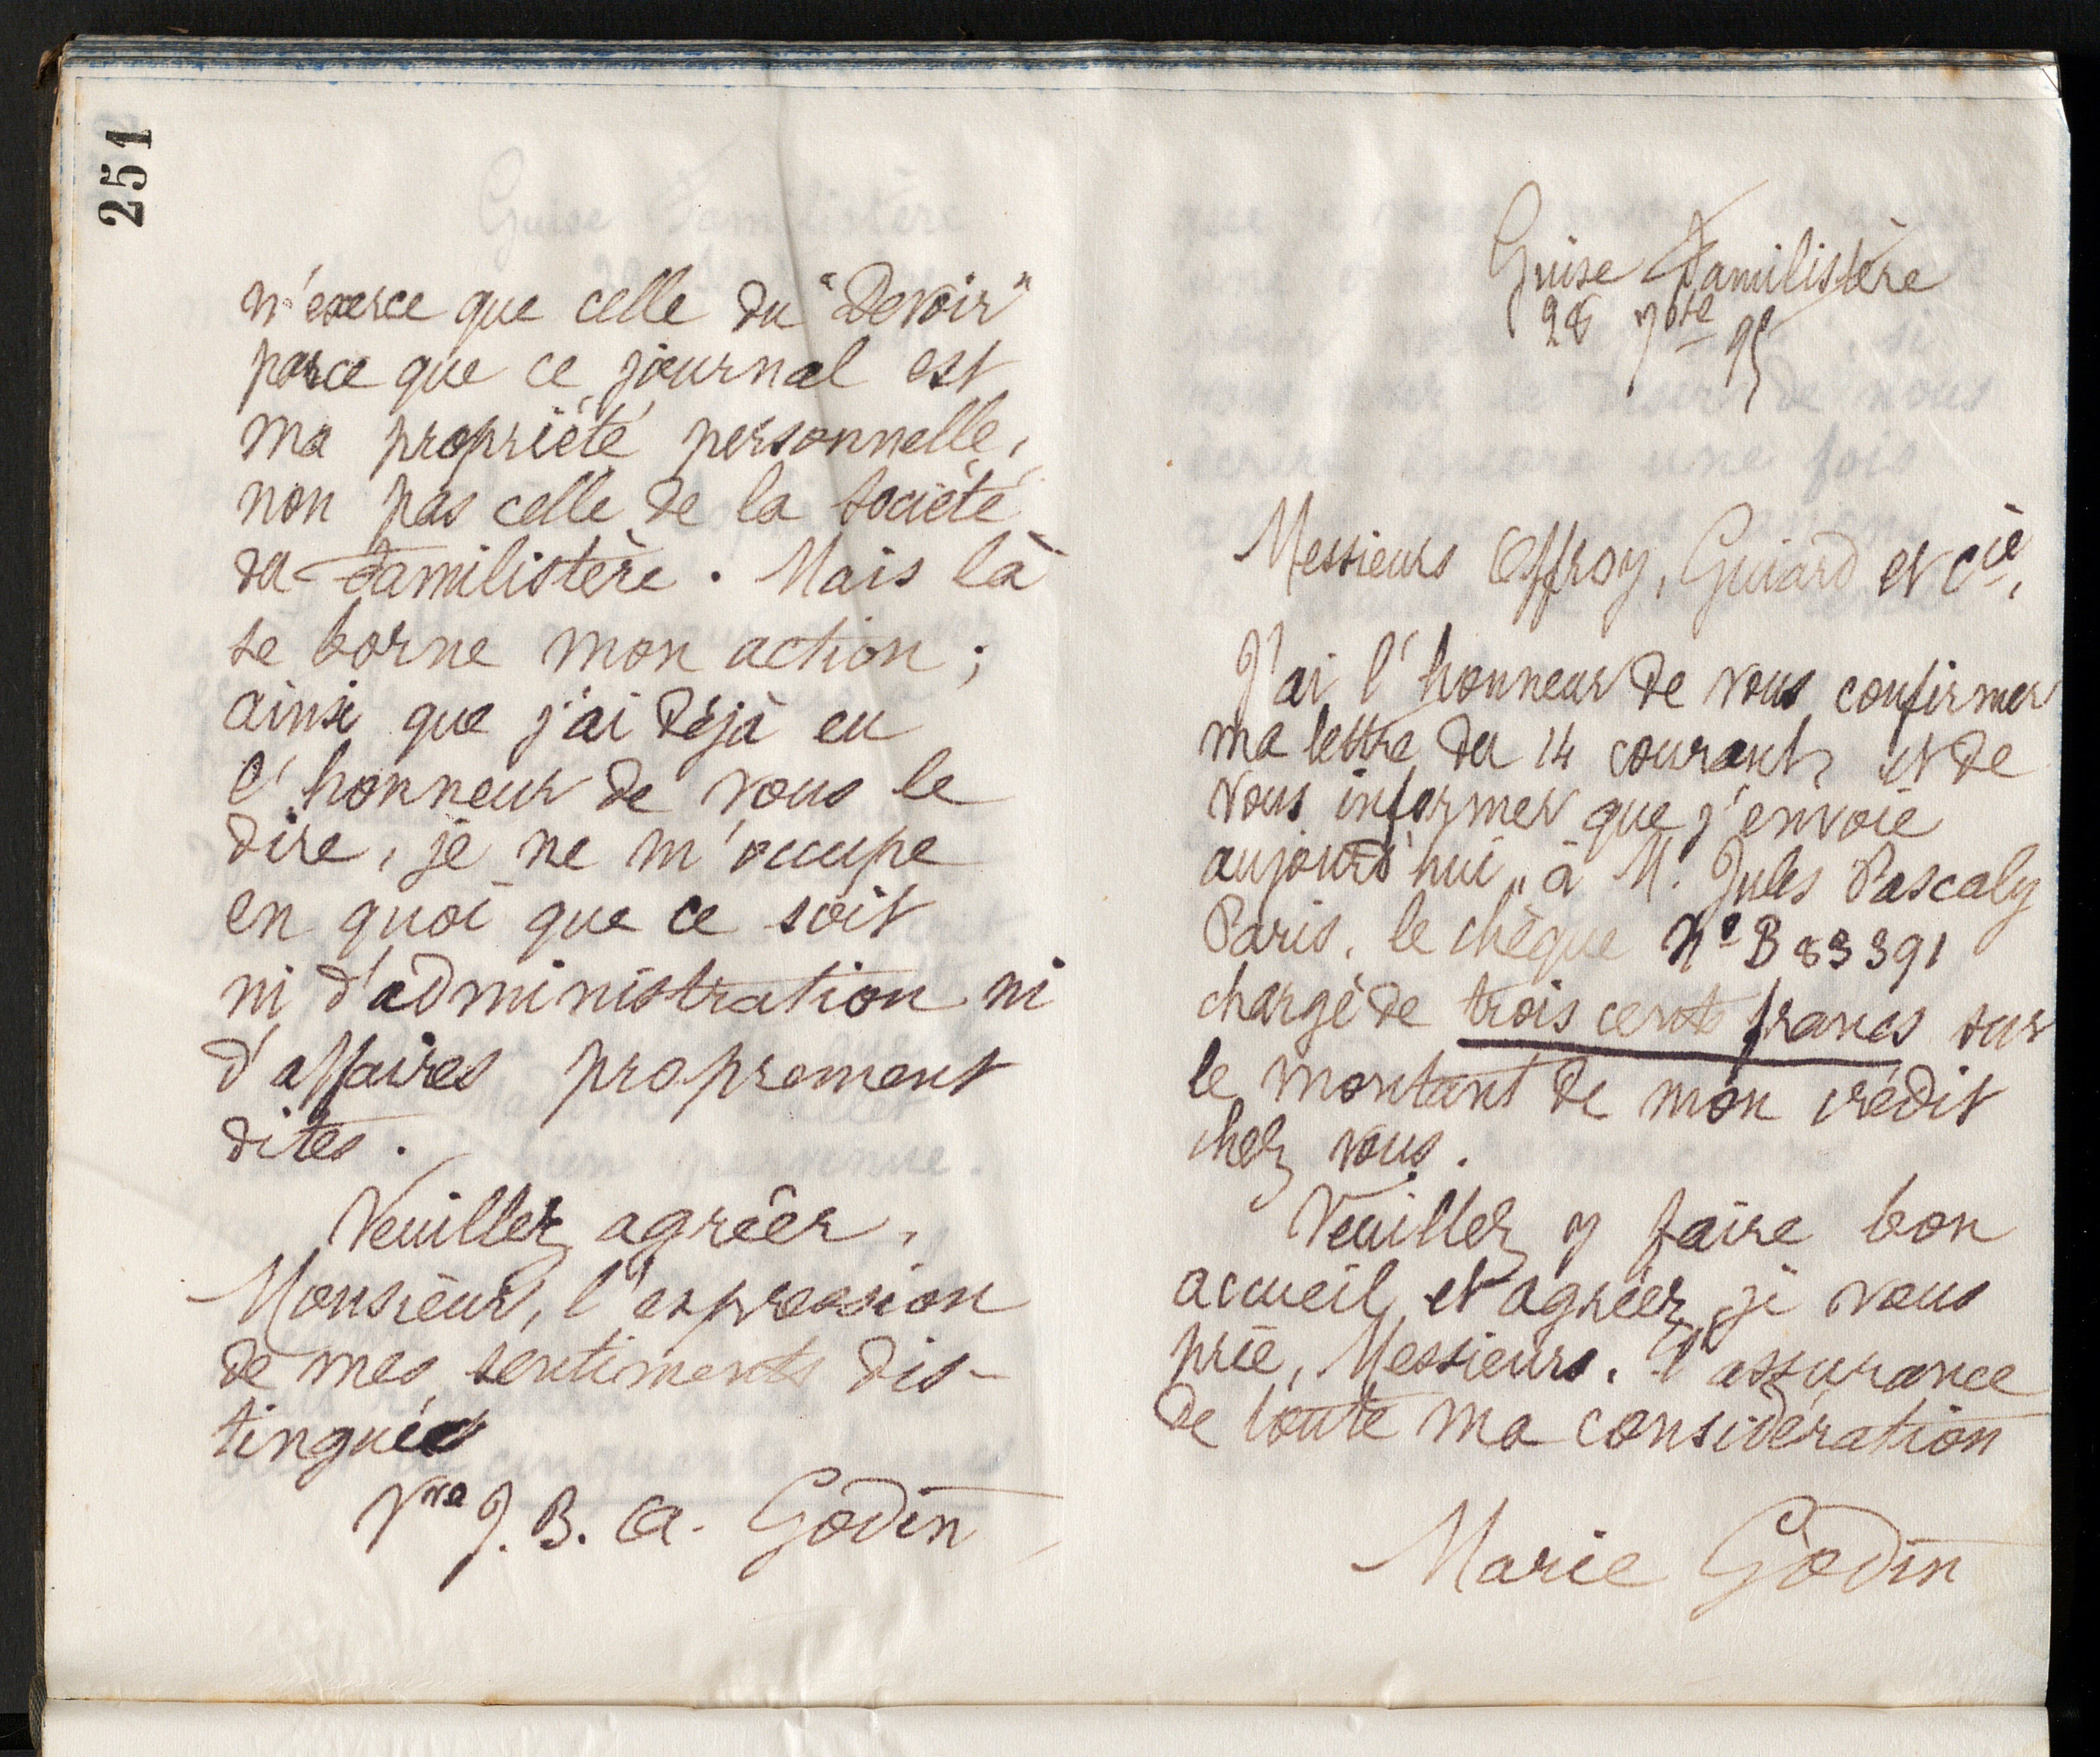 251
n'exerce que celle du "Devoir"
parce que ce journal est
ma propriété personnelle,
non pas celle de la Société
du Familistère. Mais là
se borne mon action ;
ainsi que j'ai déjà eu
l'honneur de vous le
dire, je ne m'occupe
en quoi que ce soit
ni d'administration ni
d'affaires proprement
dites.
Veuillez agréer,
Monsieur, l'expression
de mes sentiments dis-
tingués
Vve J. B. A. Godin
Guise Familistère
28 7bre 95
Messieurs Offroy, Guiard et Cie,
J'ai l'honneur de vous confirmer
ma lettre du 14 courant, et de
vous informer que j'envoie
aujourd'hui, à M. Jules Pascaly
Paris, le chèque No B 83391
chargé de trois cents francs sur
le montant de mon crédit
chez vous.
Veuillez y faire bon
accueil et agréer, je vous
prie, Messieurs, l'assurance
de toute ma considération
Marie Godin